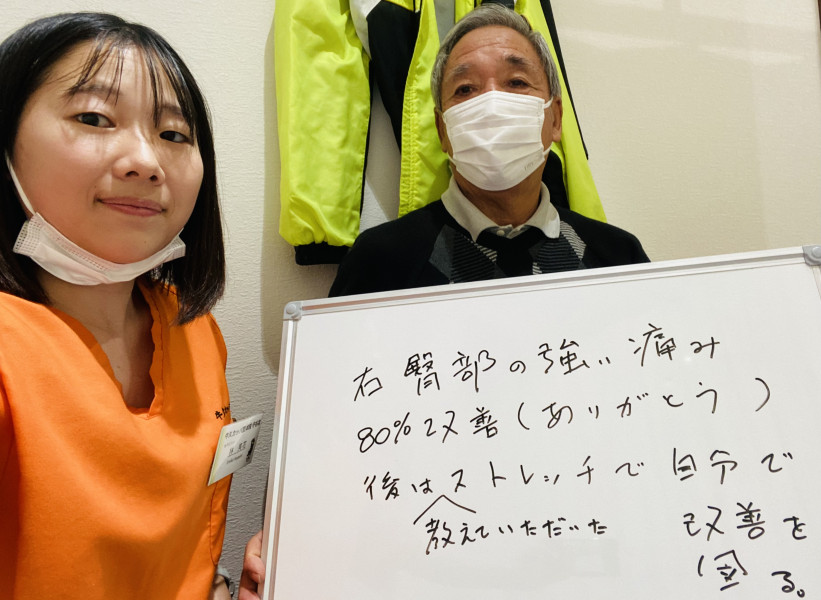 右臀部の強い痛み
80%改善(ありがとう)
後はストレッチで自分で
教えていただいた
改善を
図る。